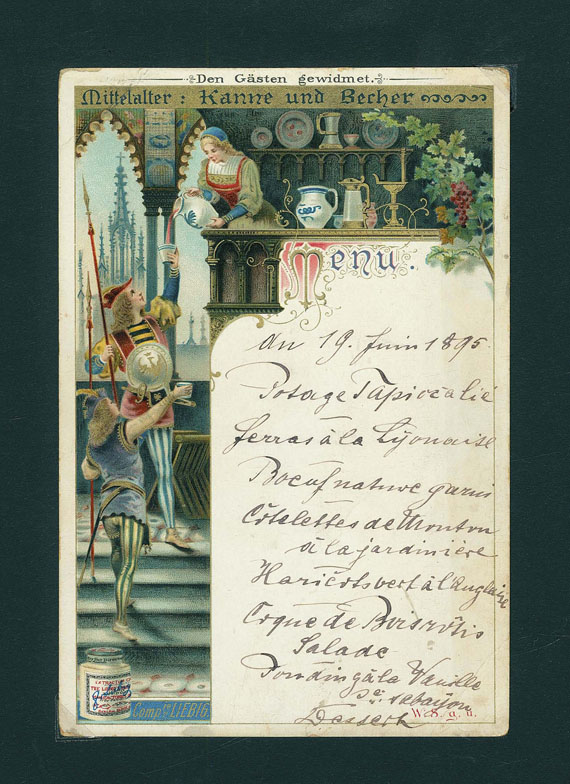 Den Gästen gewidmet.
Mittelalter: Kanne und Becher
Menu.
du 19. Juin 1895.
Potage Tapioca lié
ferras à la Lyonaise
Boeuf nature garni
Côtelettes de Monton
à la jardinière
Haricots vert à l'Anglaise
Coque de Bois rôtis
Salade
Pouding à la Vanille
sabayon
Dessert
W. S. g. u.
EXTRACT
Compie LIEBIG